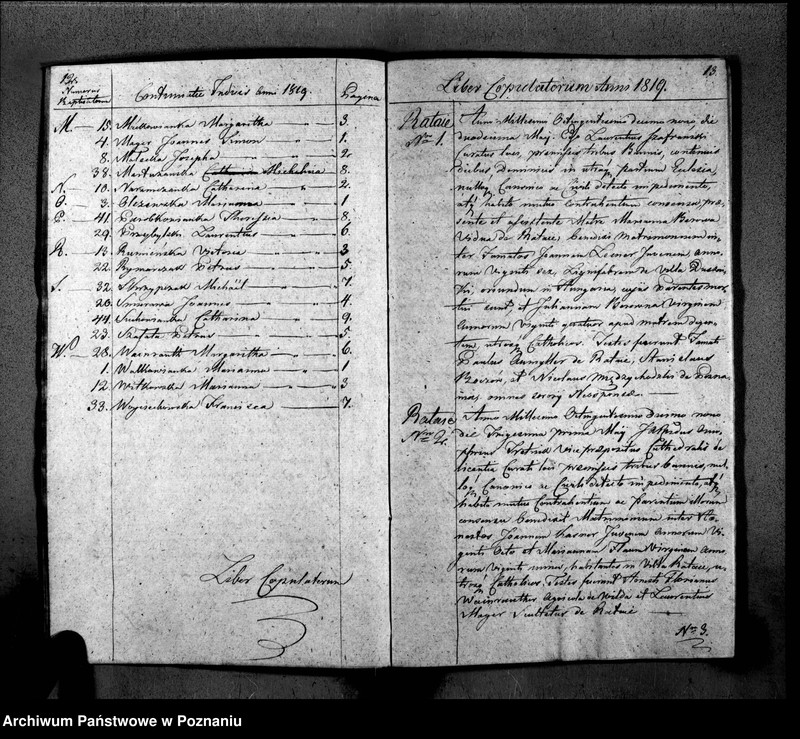 12.
Numerus
Baptisatorum
Continuatio Indicis Anni 1819.
Pagina
M. 15. Mutkowianka Margaritha 3.
4. Mager Joannes Simon 1.
8. Małecka Josepha 2.
38. Michalina 8.
N. 10. Catharina 2.
O. 3. Olszewska Marianna 1
P. 41. 8.
29. Przybylski Laurentius 6.
R. 13. Rumińska Victoria 3
22. Rymarczak Petrus 5
S. 32. Skrzypczak Michäil 7.
20. Joannes 4.
44. Catharina 9.
23. Szafata Petrus 5.
W. 28. Weinranth Margaritha 6.
1. Walkowianka Marianna 1
12. Witkowska Marianna 3
33. Woyciechowska Francisca 7.
Liber Copulatorum
13.
Liber Copulatorum Anni 1819.
Rataie
No 1.
Anno Millesimo Octingentesimo decimo nono die
duodecima Maji Ego Laurentius
Curatus loci, præmissis tribus Bannis, continuis
diebus Dominicis in utraq partium Ecclesia,
nulloq Canonico ac Civili detecto impedimento,
atq habito mutuo contrahentium consensu præ-
sente et assistente Matre Marianna
Vidua de Rataie, benedixi Matrimonium in-
ter Famatos Joannem Juvenem anno-
rum Viginti sex, Lignifabrum de Villa
oriundum in Hungaria, cujus Parentes mor-
tui sunt, et Juliannam Virginem
annorum Viginti quatuor apud matrem degen-
tem, utrosq Catholicos. Testes fuerunt Famati
Paulus de Rataie, Stanislaus
et Nicolaus de Posna-
nia, omnes
Rataie
Nro 2.
Anno Millesimo Octingentesimo decimo nono
die Trigesima prima Maji
vice præpositus Cathedralis de
licentia Curati loci præmissis tribus bannis, nul-
loq Canonico ac Civili detecto impedimento, atq
habito mutuo Contrahentium ac parentum illorum
consensu benedixit Matrimonium inter Ho-
nestos Joannem Juvenem annorum Vi-
ginti Octo et Mariannam Virginem anno-
rum Viginti unius, habitantes in Villa Rataie, u-
trosq Catholicos. Testes fuerunt Honesti Florianus
Weinranther Agricola de Wilda et Laurentius
Mager Scultetus de Rataie
No 3.
Archiwum Państwowe w Poznaniu